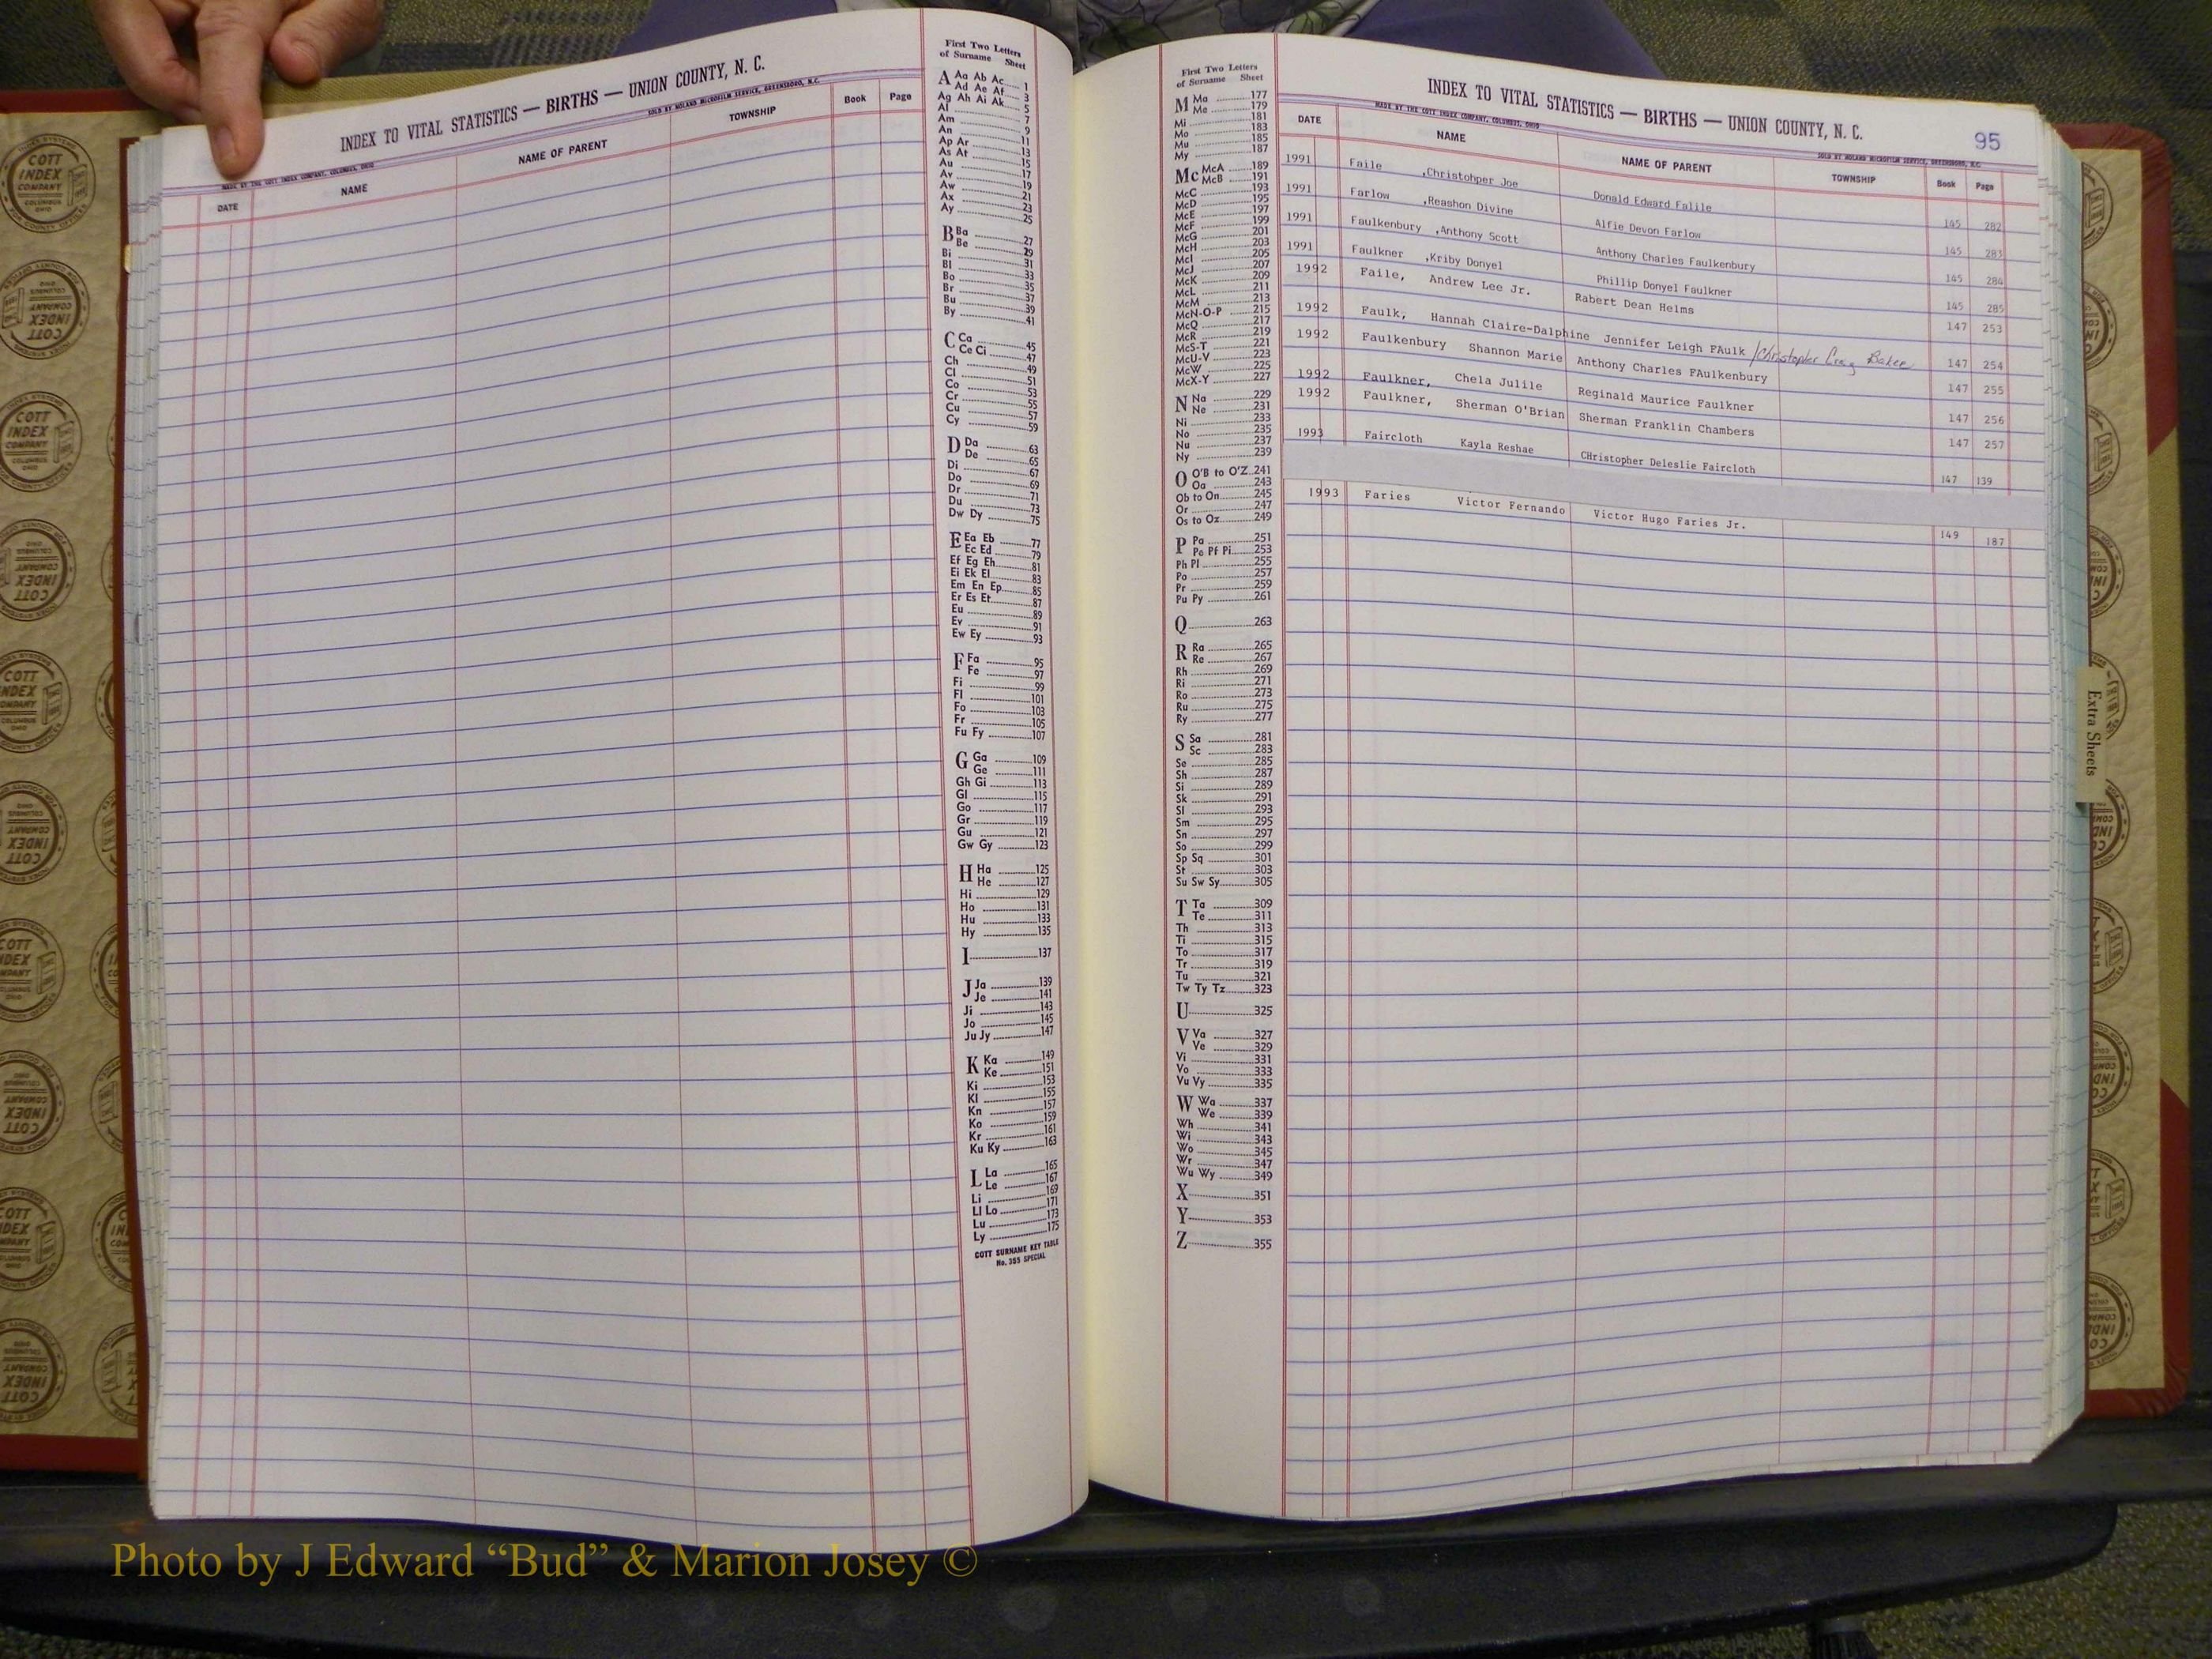 INDEX TO VITAL STATISTICS — BIRTHS — UNION COUNTY, N. C.
MADE BY THE COTT INDEX COMPANY, COLUMBUS, OHIO
SOLD BY NOLAND MICROFILM SERVICE, GREENSBORO, N.C.
DATE NAME NAME OF PARENT TOWNSHIP Book Page
First Two Letters
of Surname Sheet
A Aa Ab Ac 1
Ad Ae Af 3
Ag Ah Ai Ak 5
Al 7
Am 9
An 11
Ap Ar 13
As At 15
Au 17
Av 19
Aw 21
Ax 23
Ay 25
B Ba 27
Be 29
Bi 31
Bl 33
Bo 35
Br 37
Bu 39
By 41
C Ca 45
Ce Ci 47
Ch 49
Cl 51
Co 53
Cr 55
Cu 57
Cy 59
D Da 63
De 65
Di 67
Do 69
Dr 71
Du 73
Dw Dy 75
E Ea Eb 77
Ec Ed 79
Ef Eg Eh 81
Ei Ek El 83
Em En Ep 85
Er Es Et 87
Eu 89
Ev 91
Ew Ey 93
F Fa 95
Fe 97
Fi 99
Fl 101
Fo 103
Fr 105
Fu Fy 107
G Ga 109
Ge 111
Gh Gi 113
Gl 115
Go 117
Gr 119
Gu 121
Gw Gy 123
H Ha 125
He 127
Hi 129
Ho 131
Hu 133
Hy 135
I 137
J Ja 139
Je 141
Ji 143
Jo 145
Ju Jy 147
K Ka 149
Ke 151
Ki 153
Kl 155
Kn 157
Ko 159
Kr 161
Ku Ky 163
L La 165
Le 167
Li 169
Ll Lo 171
Lu 173
Ly 175
COTT SURNAME KEY TABLE
No. 355 SPECIAL
First Two Letters
of Surname Sheet
M Ma 177
Me 179
Mi 181
Mo 183
Mu 185
My 187
Mc McA 189
McB 191
McC 193
McD 195
McE 197
McF 199
McG 201
McH 203
McI 205
McJ 207
McK 209
McL 211
McM 213
McN-O-P 215
McQ 217
McR 219
McS-T 221
McU-V 223
McW 225
McX-Y 227
N Na 229
Ne 231
Ni 233
No 235
Nu 237
Ny 239
O O'B to O'Z 241
Oa 243
Ob to On 245
Or 247
Os to Oz 249
P Pa 251
Pe Pf Pi 253
Ph Pl 255
Po 257
Pr 259
Pu Py 261
Q 263
R Ra 265
Re 267
Rh 269
Ri 271
Ro 273
Ru 275
Ry 277
S Sa 281
Sc 283
Se 285
Sh 287
Si 289
Sk 291
Sl 293
Sm 295
Sn 297
So 299
Sp Sq 301
St 303
Su Sw Sy 305
T Ta 309
Te 311
Th 313
Ti 315
To 317
Tr 319
Tu 321
Tw Ty Tz 323
U 325
V Va 327
Ve 329
Vi 331
Vo 333
Vu Vy 335
W Wa 337
We 339
Wh 341
Wi 343
Wo 345
Wr 347
Wu Wy 349
X 351
Y 353
Z 355
INDEX TO VITAL STATISTICS — BIRTHS — UNION COUNTY, N. C.
95
MADE BY THE COTT INDEX COMPANY, COLUMBUS, OHIO
SOLD BY NOLAND MICROFILM SERVICE, GREENSBORO, N.C.
DATE NAME NAME OF PARENT TOWNSHIP Book Page
1991 Faile ,Christohper Joe Donald Edward Falile 145 282
1991 Farlow ,Reashon Divine Alfie Devon Farlow 145 283
1991 Faulkenbury ,Anthony Scott Anthony Charles Faulkenbury 145 284
1991 Faulkner ,Kriby Donyel Phillip Donyel Faulkner 145 285
1992 Faile, Andrew Lee Jr. Rabert Dean Helms 147 253
1992 Faulk, Hannah Claire-Dalphine Jennifer Leigh FAulk /Christopher Craig Baker 147 254
1992 Faulkenbury Shannon Marie Anthony Charles FAulkenbury 147 255
1992 Faulkner, Chela Julile Reginald Maurice Faulkner 147 256
1992 Faulkner, Sherman O'Brian Sherman Franklin Chambers 147 257
1993 Faircloth Kayla Reshae CHristopher Deleslie Faircloth 147 139
1993 Faries Victor Fernando Victor Hugo Faries Jr. 149 187
Extra Sheets
COTT
INDEX
COMPANY
COLUMBUS
OHIO
Photo by J Edward “Bud” & Marion Josey ©